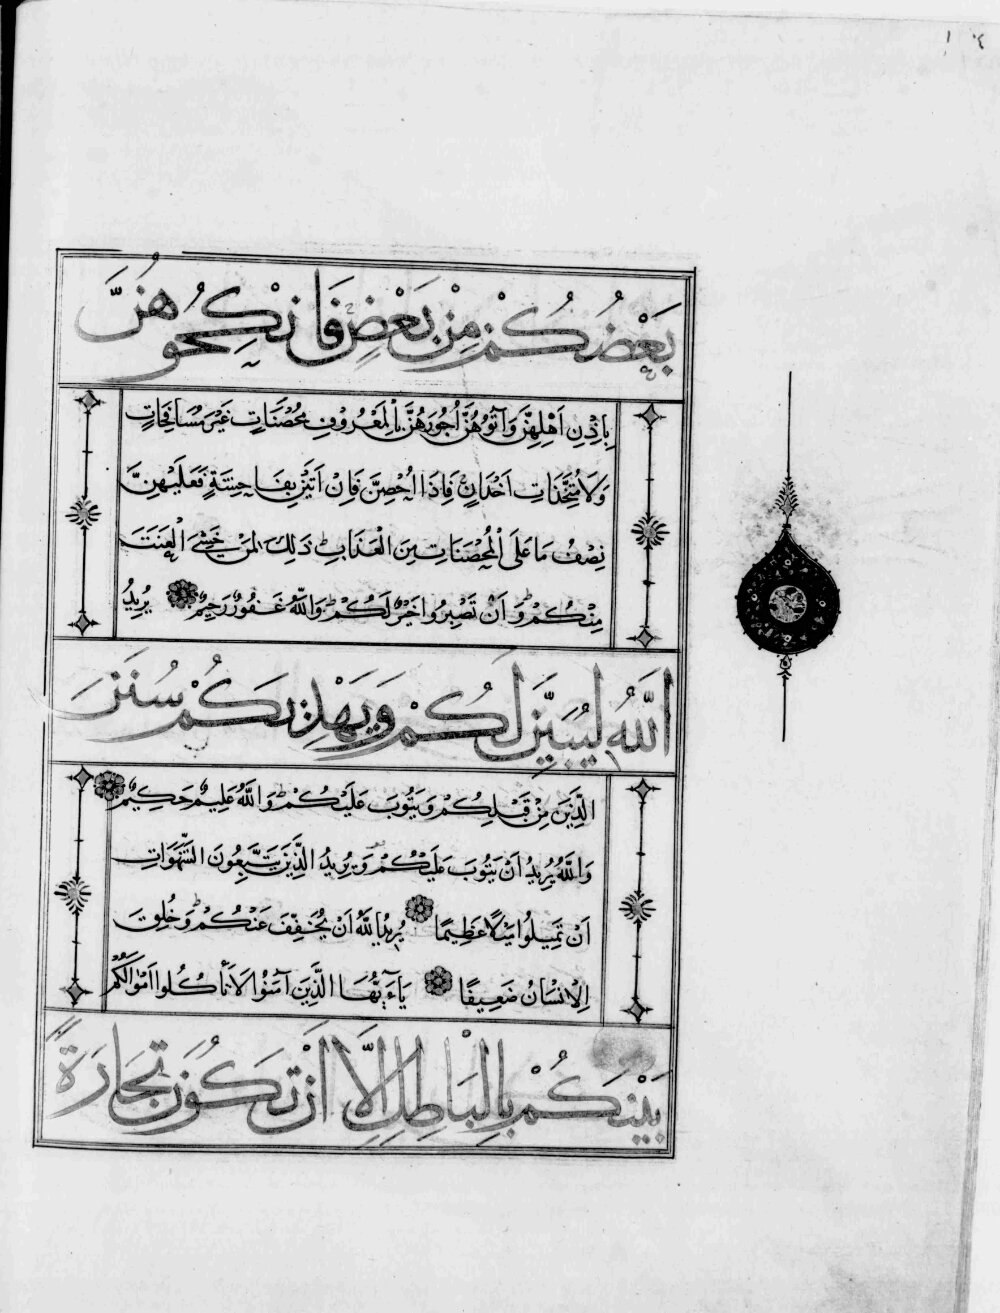 ١٠٤
بَعْضُكُمْ مِنْ بَعْضٍ فَانْكِحُوهُنَّ
بِاِذْنِ اَهْلِهِنَّ وَآتُوهُنَّ اُجُورَهُنَّ بِالْمَعْرُوفِ مُحْصَنَاتٍ غَيْرَ مُسَافِحَاتٍ
وَلَا مُتَّخِذَاتِ اَخْدَانٍ فَاِذَا اُحْصِنَّ فَاِنْ اَتَيْنَ بِفَاحِشَةٍ فَعَلَيْهِنَّ
نِصْفُ مَا عَلَى الْمُحْصَنَاتِ مِنَ الْعَذَابِ ذَلِكَ لِمَنْ خَشِيَ الْعَنَتَ
مِنْكُمْ وَاَنْ تَصْبِرُوا خَيْرٌ لَكُمْ وَاللهُ غَفُورٌ رَحِيمٌ يُرِيدُ
اللهُ لِيُبَيِّنَ لَكُمْ وَيَهْدِيَكُمْ سُنَنَ
الَّذِينَ مِنْ قَبْلِكُمْ وَيَتُوبَ عَلَيْكُمْ وَاللهُ عَلِيمٌ حَكِيمٌ
وَاللهُ يُرِيدُ اَنْ يَتُوبَ عَلَيْكُمْ وَيُرِيدُ الَّذِينَ يَتَّبِعُونَ الشَّهَوَاتِ
اَنْ تَمِيلُوا مَيْلًا عَظِيمًا يُرِيدُ اللهُ اَنْ يُخَفِّفَ عَنْكُمْ وَخُلِقَ
الْاِنْسَانُ ضَعِيفًا يَاءَيُّهَا الَّذِينَ آمَنُوا لَا تَأْكُلُوا اَمْوَالَكُمْ
بَيْنَكُمْ بِالْبَاطِلِ اِلَّا اَنْ تَكُونَ تِجَارَةً